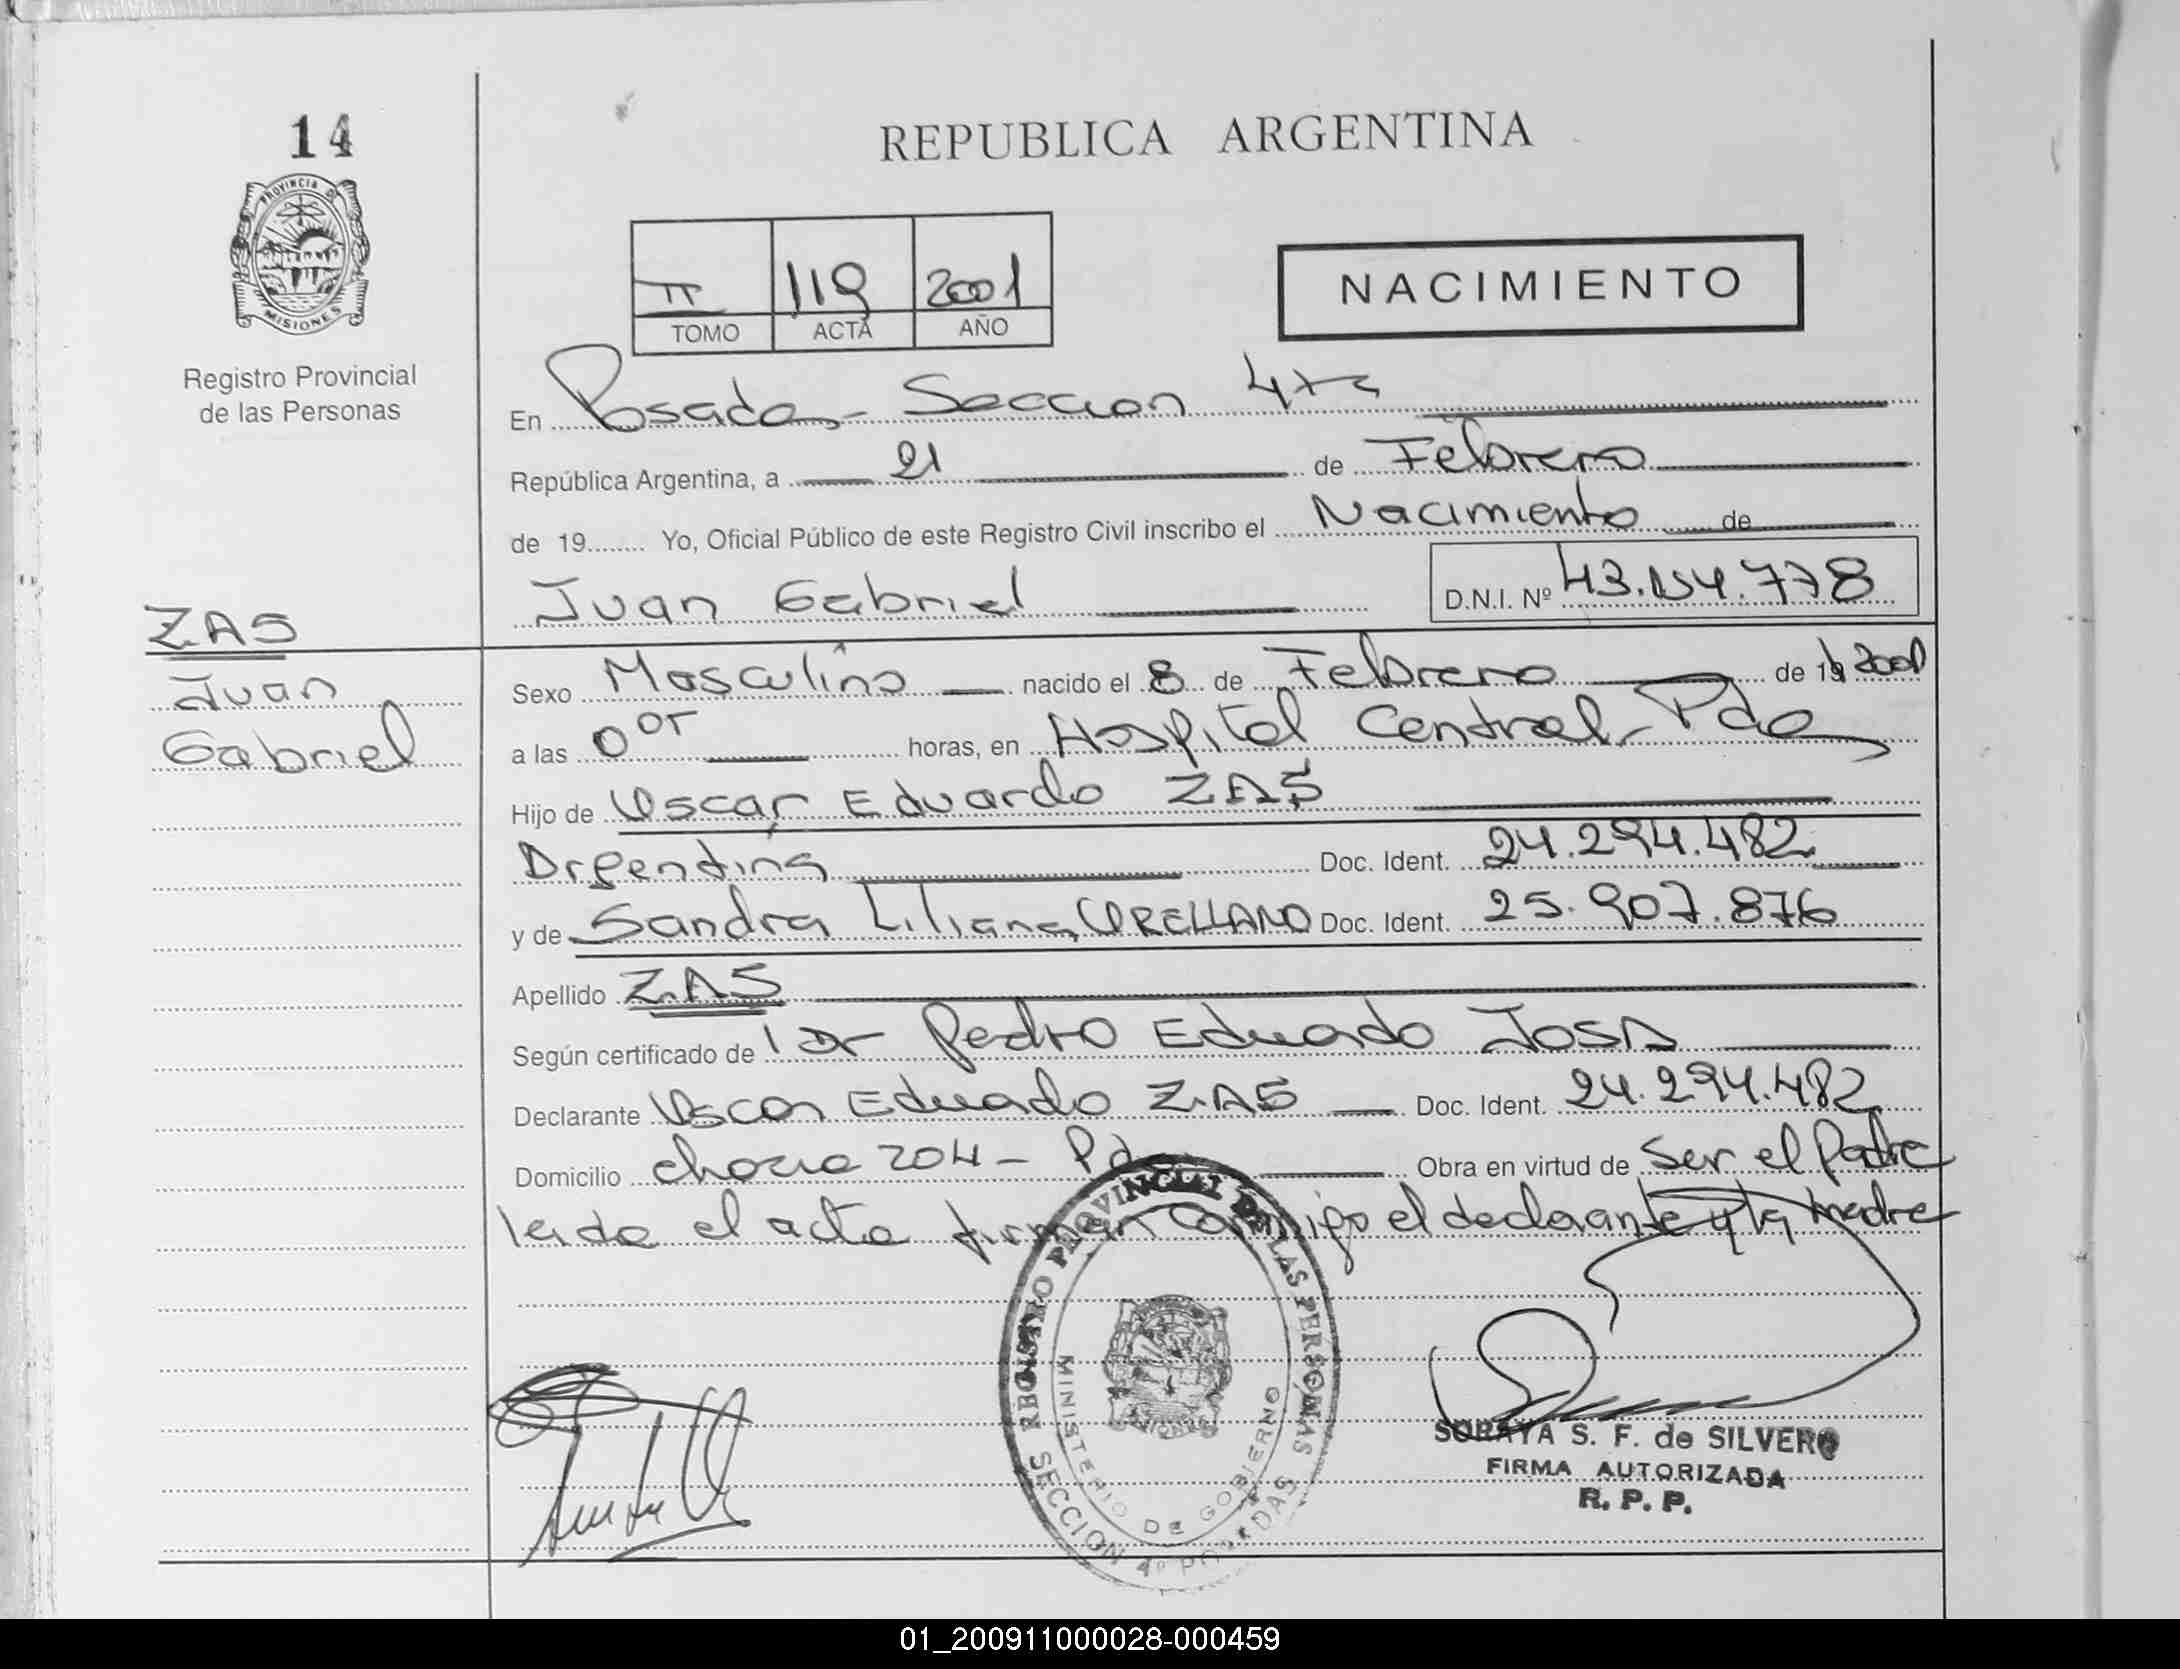 14
PROVINCIA DE
MISIONES
Registro Provincial
de las Personas
REPUBLICA ARGENTINA
II 119 2001
TOMO ACTA AÑO
NACIMIENTO
En Posadas - Seccion 4ta
República Argentina, a 21 de Febrero
de 19........ Yo, Oficial Público de este Registro Civil inscribo el Nacimiento de
Juan Gabriel D.N.I. Nº 43.154.778
ZAS
Juan
Gabriel
Sexo Masculino nacido el 8 de Febrero de 19 2001
a las 0 horas, en Hospital Central - Pdas
Hijo de Oscar Eduardo ZAS
Argentina Doc. Ident. 24.294.482
y de Sandra Liliana ORELLANO Doc. Ident. 25.907.876
Apellido ZAS
Según certificado de Dr Pedro Eduardo
Declarante Oscar Eduardo ZAS Doc. Ident. 24.294.482
Domicilio 204 - Pdas Obra en virtud de Ser el Padre
leida el acta firman conmigo el declarante y la madre
REGISTRO PROVINCIAL DE LAS PERSONAS
MINISTERIO DE GOBIERNO
SECCION 4º POSADAS
SORAYA S. F. de SILVERO
FIRMA AUTORIZADA
R. P. P.
01_200911000028-000459